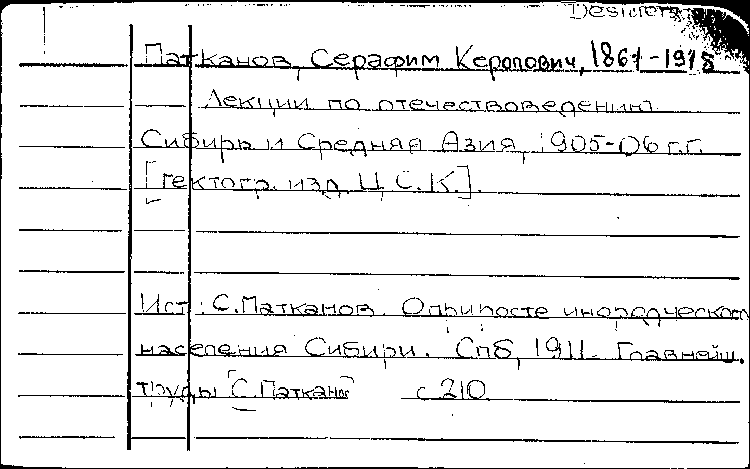 Desider
Патканов, Серафим Керопович, 1861-1918
Лекции по отечествоведению.
Сибирь и Средняя Азия, 1905-06 г.г.
[гектогр. изд. Ц.С.К.].
Ист: С.Патканов. О приросте инородческом
населения Сибири. Спб, 1911. Главнейш.
труды С.Патканов с 210.